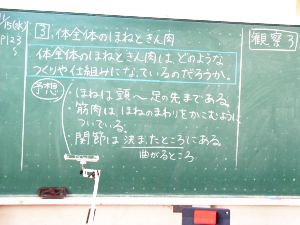 11/15(水)
P123
3 体全体のほねときん肉
観察3
体全体のほねときん肉は、どのような
つくりや仕組みになっているのだろうか。
予想
・ほねは頭〜足の先まである。
・筋肉は、ほねのまわりをかこむように
ついている。
・関節は決まったところにある。
曲がるところ